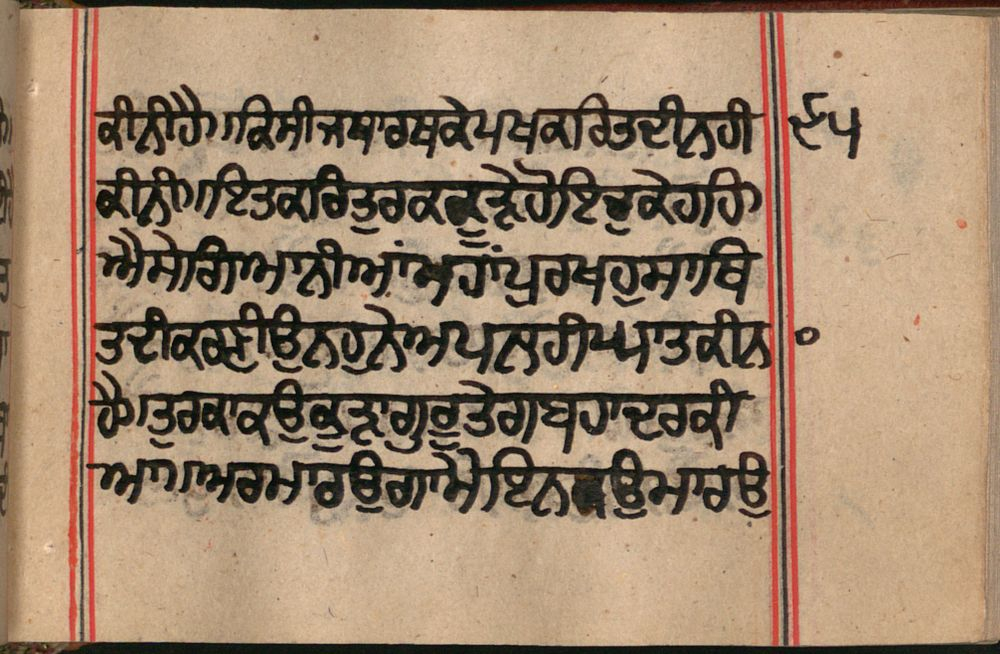 ਕੀਨੀਹੈ॥ਕਿਸੀਜਥਾਰਥਕੇਪਖਕਰਿਤਦੀਨਹੀ ੯੫
ਕੀਨੀ॥ਇਤਕਰਿਤੁਰਕਕੂੜੇਹੋਇਚੁਕੇਹਹਿ
ਐਸੇਗਿਆਨੀਆਂ ਪੁਰਖਹੁਸਾਬਿ
ਤਦੀਕਕਣੀਉਨਹੁਨੇਅਪਨਹੀਘਾਤਕੀਨ
ਹੈ॥ਤੁਰਕਾਕਉਕੂੜਾਗੁਰੂਤੇਗਬਹਾਦਰਕੀ
ਆ॥ਅਰਮਾਰਉਗਾਮੈਇਨਕਉਮਾਰਉ